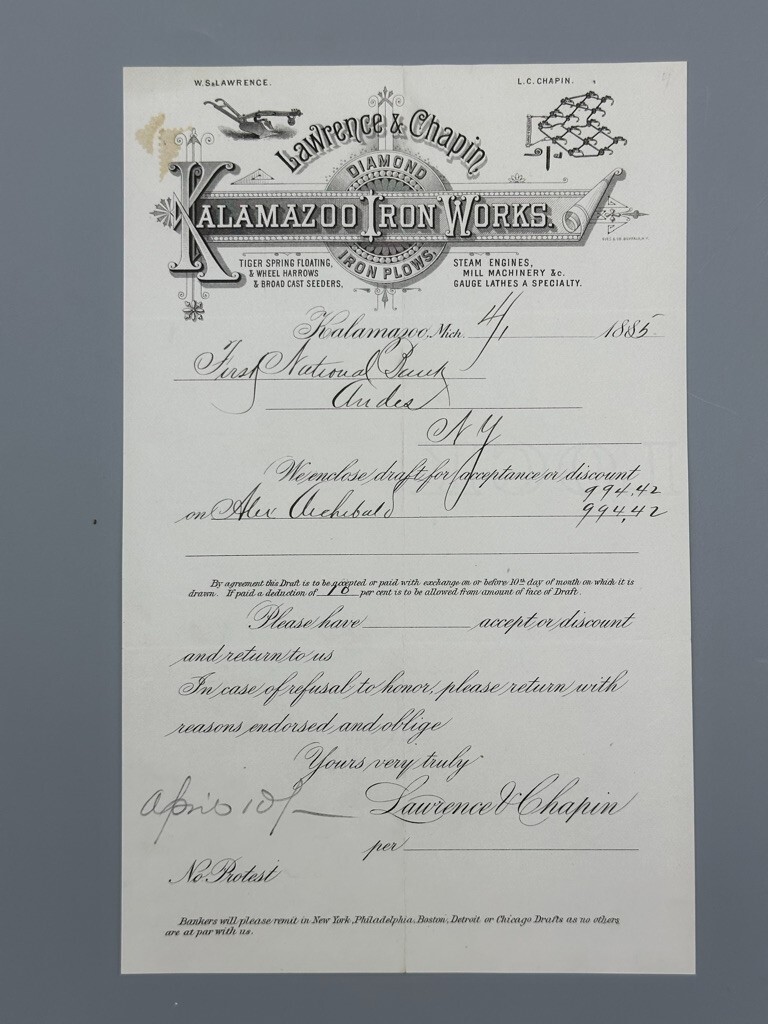 W. S. LAWRENCE.
L. C. CHAPIN.
Lawrence & Chapin.
DIAMOND
KALAMAZOO IRON WORKS.
IRON PLOWS.
TIGER SPRING FLOATING,
& WHEEL HARROWS
& BROAD CAST SEEDERS,
STEAM ENGINES,
MILL MACHINERY &c.
GAUGE LATHES A SPECIALTY.
Kalamazoo, Mich. 4/1 1885
First National Bank
Andes
NY
We enclose draft for acceptance or discount
994.42
on Alex Archibald 994.42
By agreement this Draft is to be accepted or paid with exchange on or before 10th day of month on which it is
drawn. If paid a deduction of 10 per cent is to be allowed from amount of face of Draft.
Please have accept or discount
and return to us
In case of refusal to honor, please return with
reasons endorsed and oblige
Yours very truly
April 10/-
Lawrence & Chapin
per
No Protest
Bankers will please remit in New York, Philadelphia, Boston, Detroit or Chicago Drafts as no others
are at par with us.